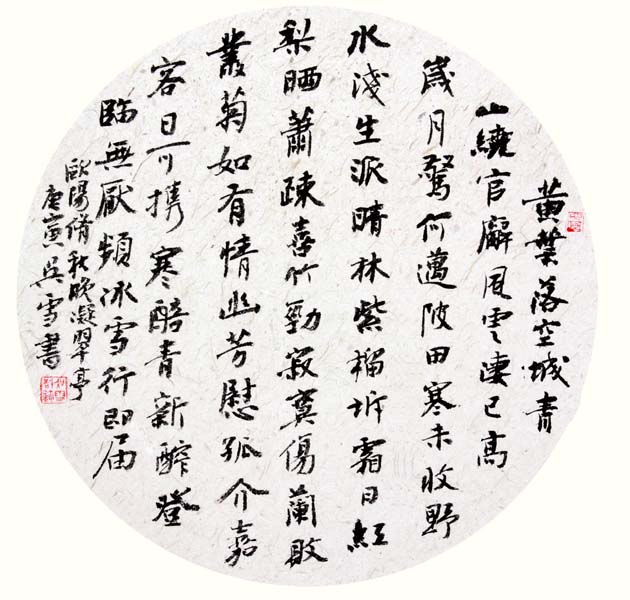 黄葉落空城青
山繞官廨風雲淒已高
歲月驚何邁陂田寒未收野
水淺生派晴林紫榴坼霜日紅
梨晒蕭疎喜竹勁寂寞傷蘭敗
叢菊如有情幽芳慰孤介嘉
客日可攜寒醅青新醡登
臨無厭頻冰雪行即届
歐陽脩秋晚凝翠亭
庚寅吳雪書